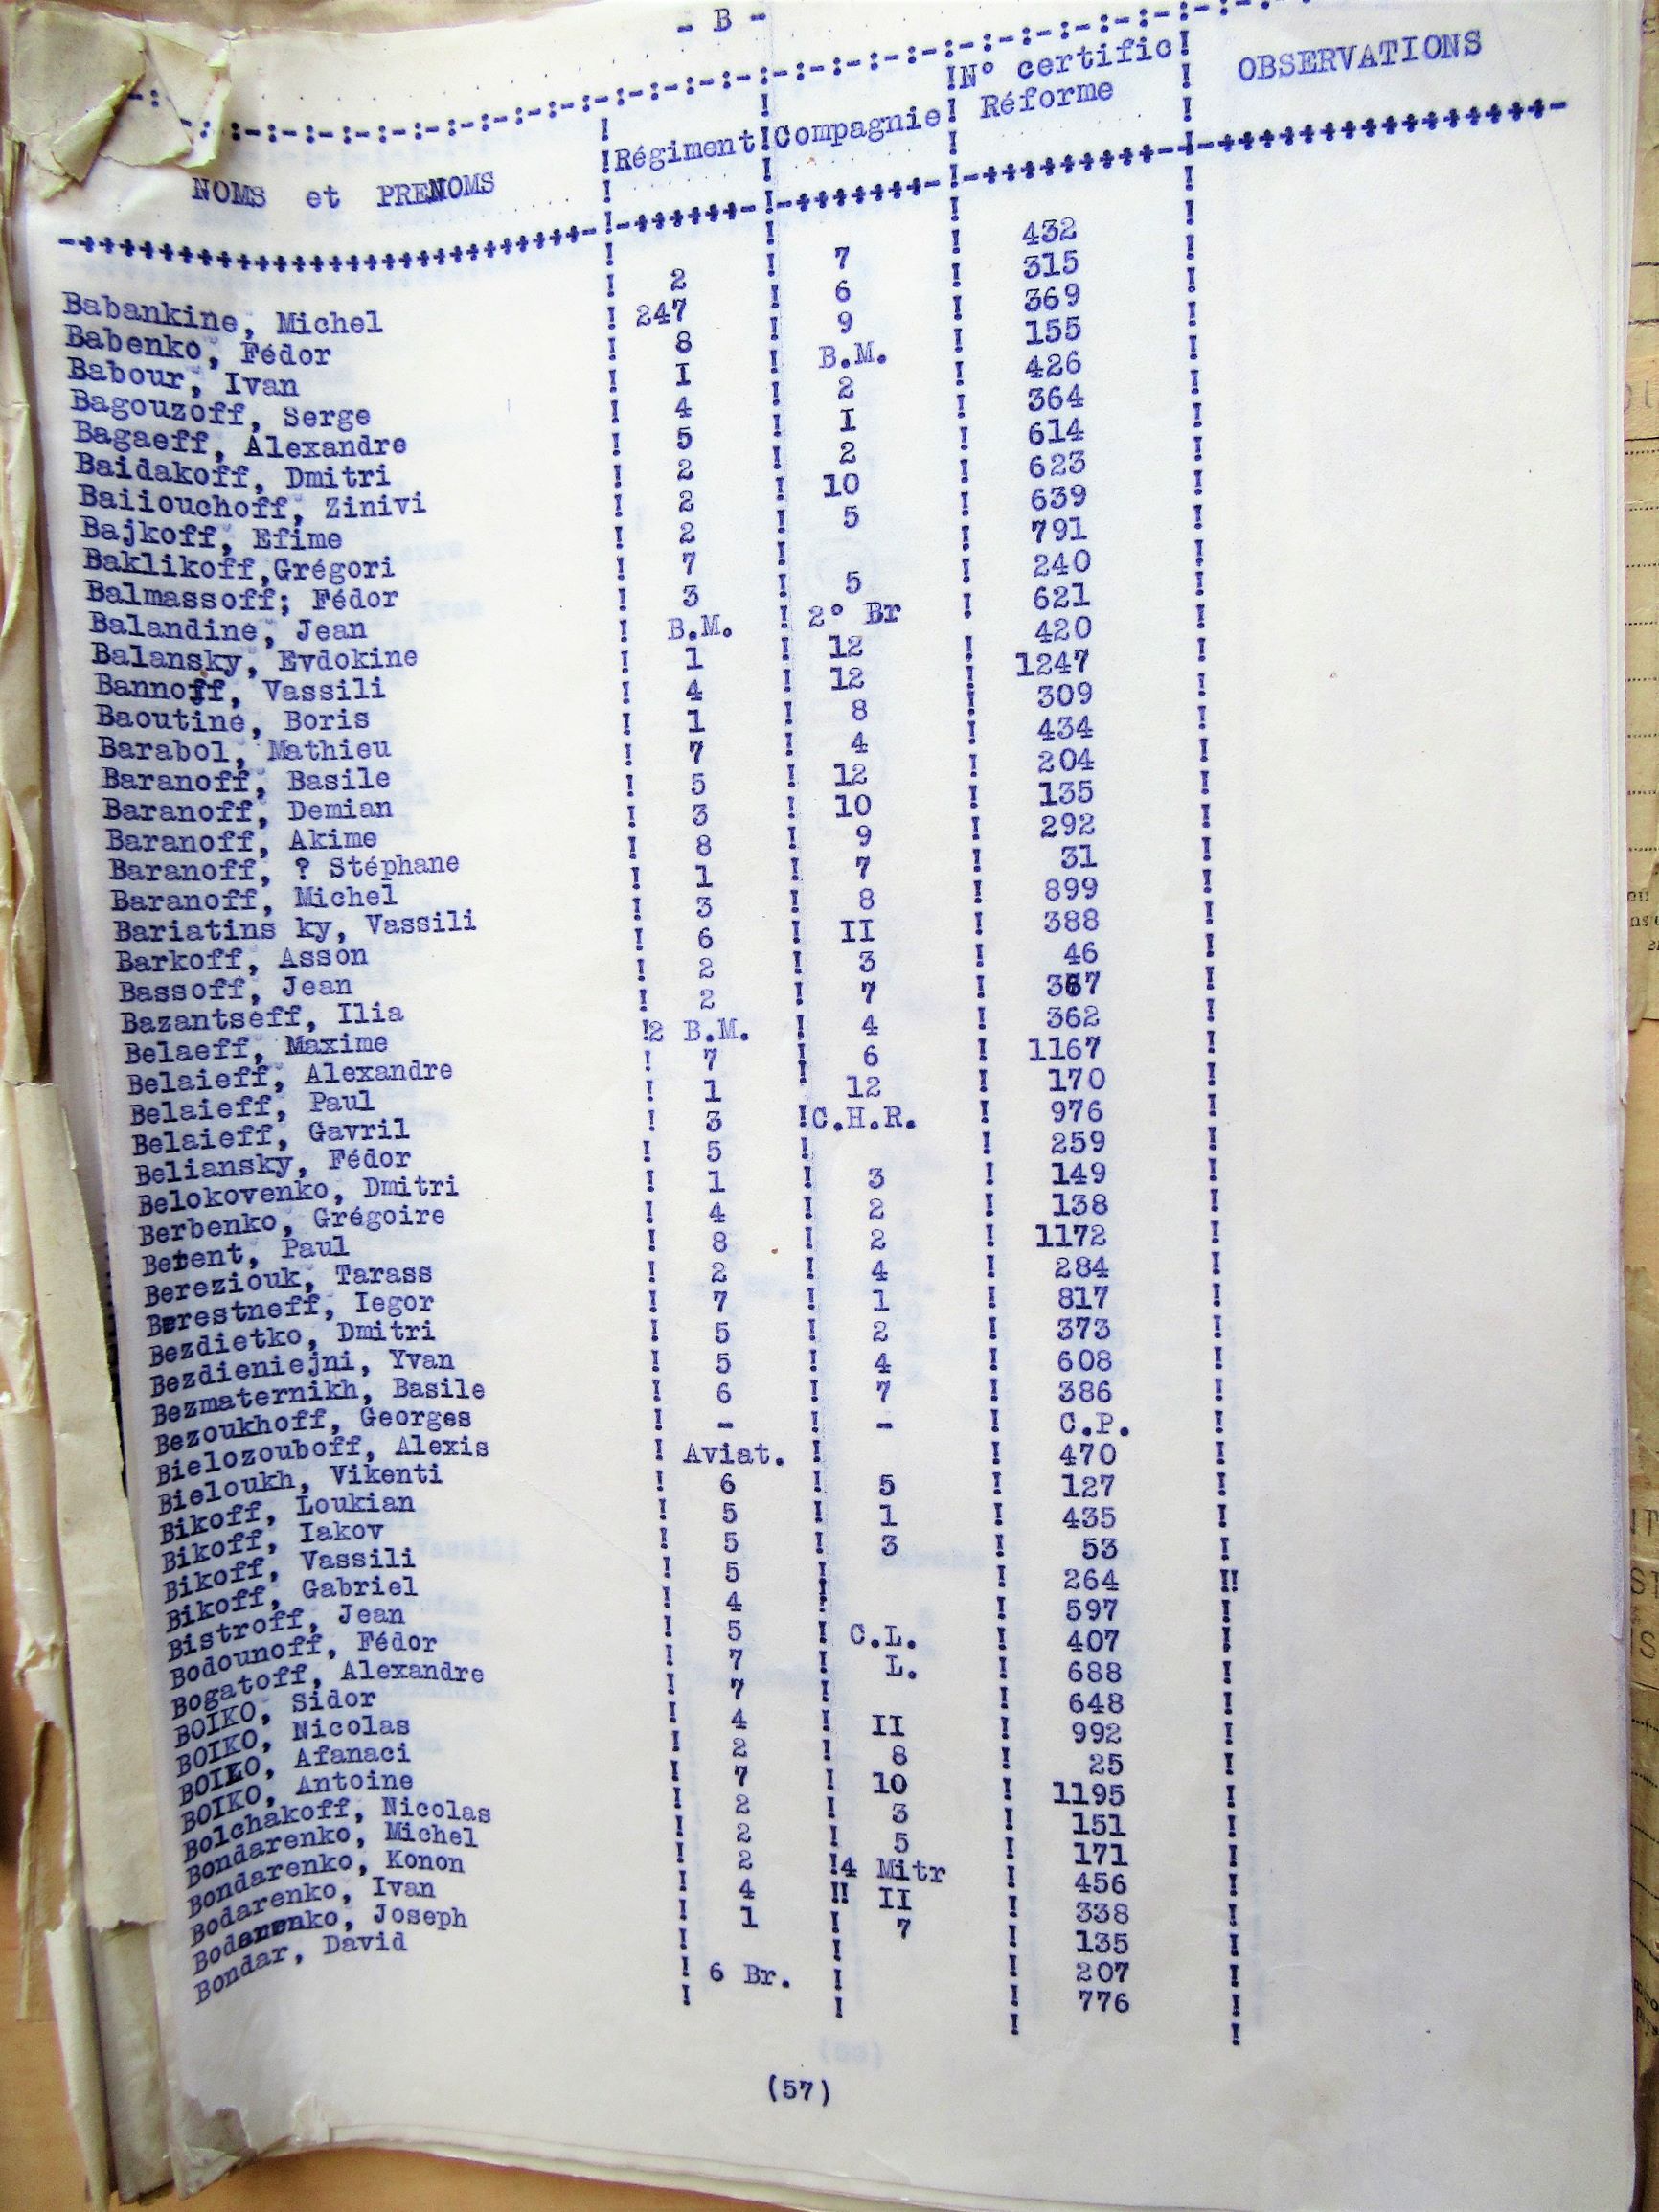 - B -
NOMS et PRENOMS Régiment Compagnie N° certific Réforme OBSERVATIONS
Babankine, Michel 2 7 432
Babenko, Fédor 247 6 315
Babour, Ivan 8 9 369
Bagouzoff, Serge I B.M. 155
Bagaeff, Alexandre 4 2 426
Baidakoff, Dmitri 5 I 364
Baiiouchoff, Zinivi 2 2 614
Bajkoff, Efime 2 10 623
Baklikoff,Grégori 2 5 639
Balmassoff; Fédor 7 791
Balandine, Jean 3 5 240
Balansky, Evdokine B.M. 2° Br 621
Bannoff, Vassili 1 12 420
Baoutine, Boris 4 12 1247
Barabol, Mathieu 1 8 309
Baranoff, Basile 7 4 434
Baranoff, Demian 5 12 204
Baranoff, Akime 3 10 135
Baranoff, ? Stéphane 8 9 292
Baranoff, Michel 1 7 31
Bariatins ky, Vassili 3 8 899
Barkoff, Asson 6 II 388
Bassoff, Jean 2 3 46
Bazantseff, Ilia 2 7 367
Belaeff, Maxime 2 B.M. 4 362
Belaieff, Alexandre 7 6 1167
Belaieff, Paul 1 12 170
Belaieff, Gavril 3 C.H.R. 976
Beliansky, Fédor 5 259
Belokovenko, Dmitri 1 3 149
Berbenko, Grégoire 4 2 138
Berent, Paul 8 2 1172
Bereziouk, Tarass 2 4 284
Berestneff, Iegor 7 1 817
Bezdietko, Dmitri 5 2 373
Bezdieniejni, Yvan 5 4 608
Bezmaternikh, Basile 6 7 386
Bezoukhoff, Georges - - C.P.
Bielozouboff, Alexis Aviat. 470
Bieloukh, Vikenti 6 5 127
Bikoff, Loukian 5 1 435
Bikoff, Iakov 5 3 53
Bikoff, Vassili 5 264
Bikoff, Gabriel 4 597
Bistroff, Jean 5 C.L. 407
Bodounoff, Fédor 7 L. 688
Bogatoff, Alexandre 7 648
BOIKO, Sidor 4 II 992
BOIKO, Nicolas 2 8 25
BOIKO, Afanaci 7 10 1195
BOIKO, Antoine 2 3 151
Bolchakoff, Nicolas 2 5 171
Bondarenko, Michel 2 4 Mitr 456
Bondarenko, Konon 4 II 338
Bodarenko, Ivan 1 7 135
Bodarenko, Joseph 207
Bondar, David 6 Br. 776
(57)